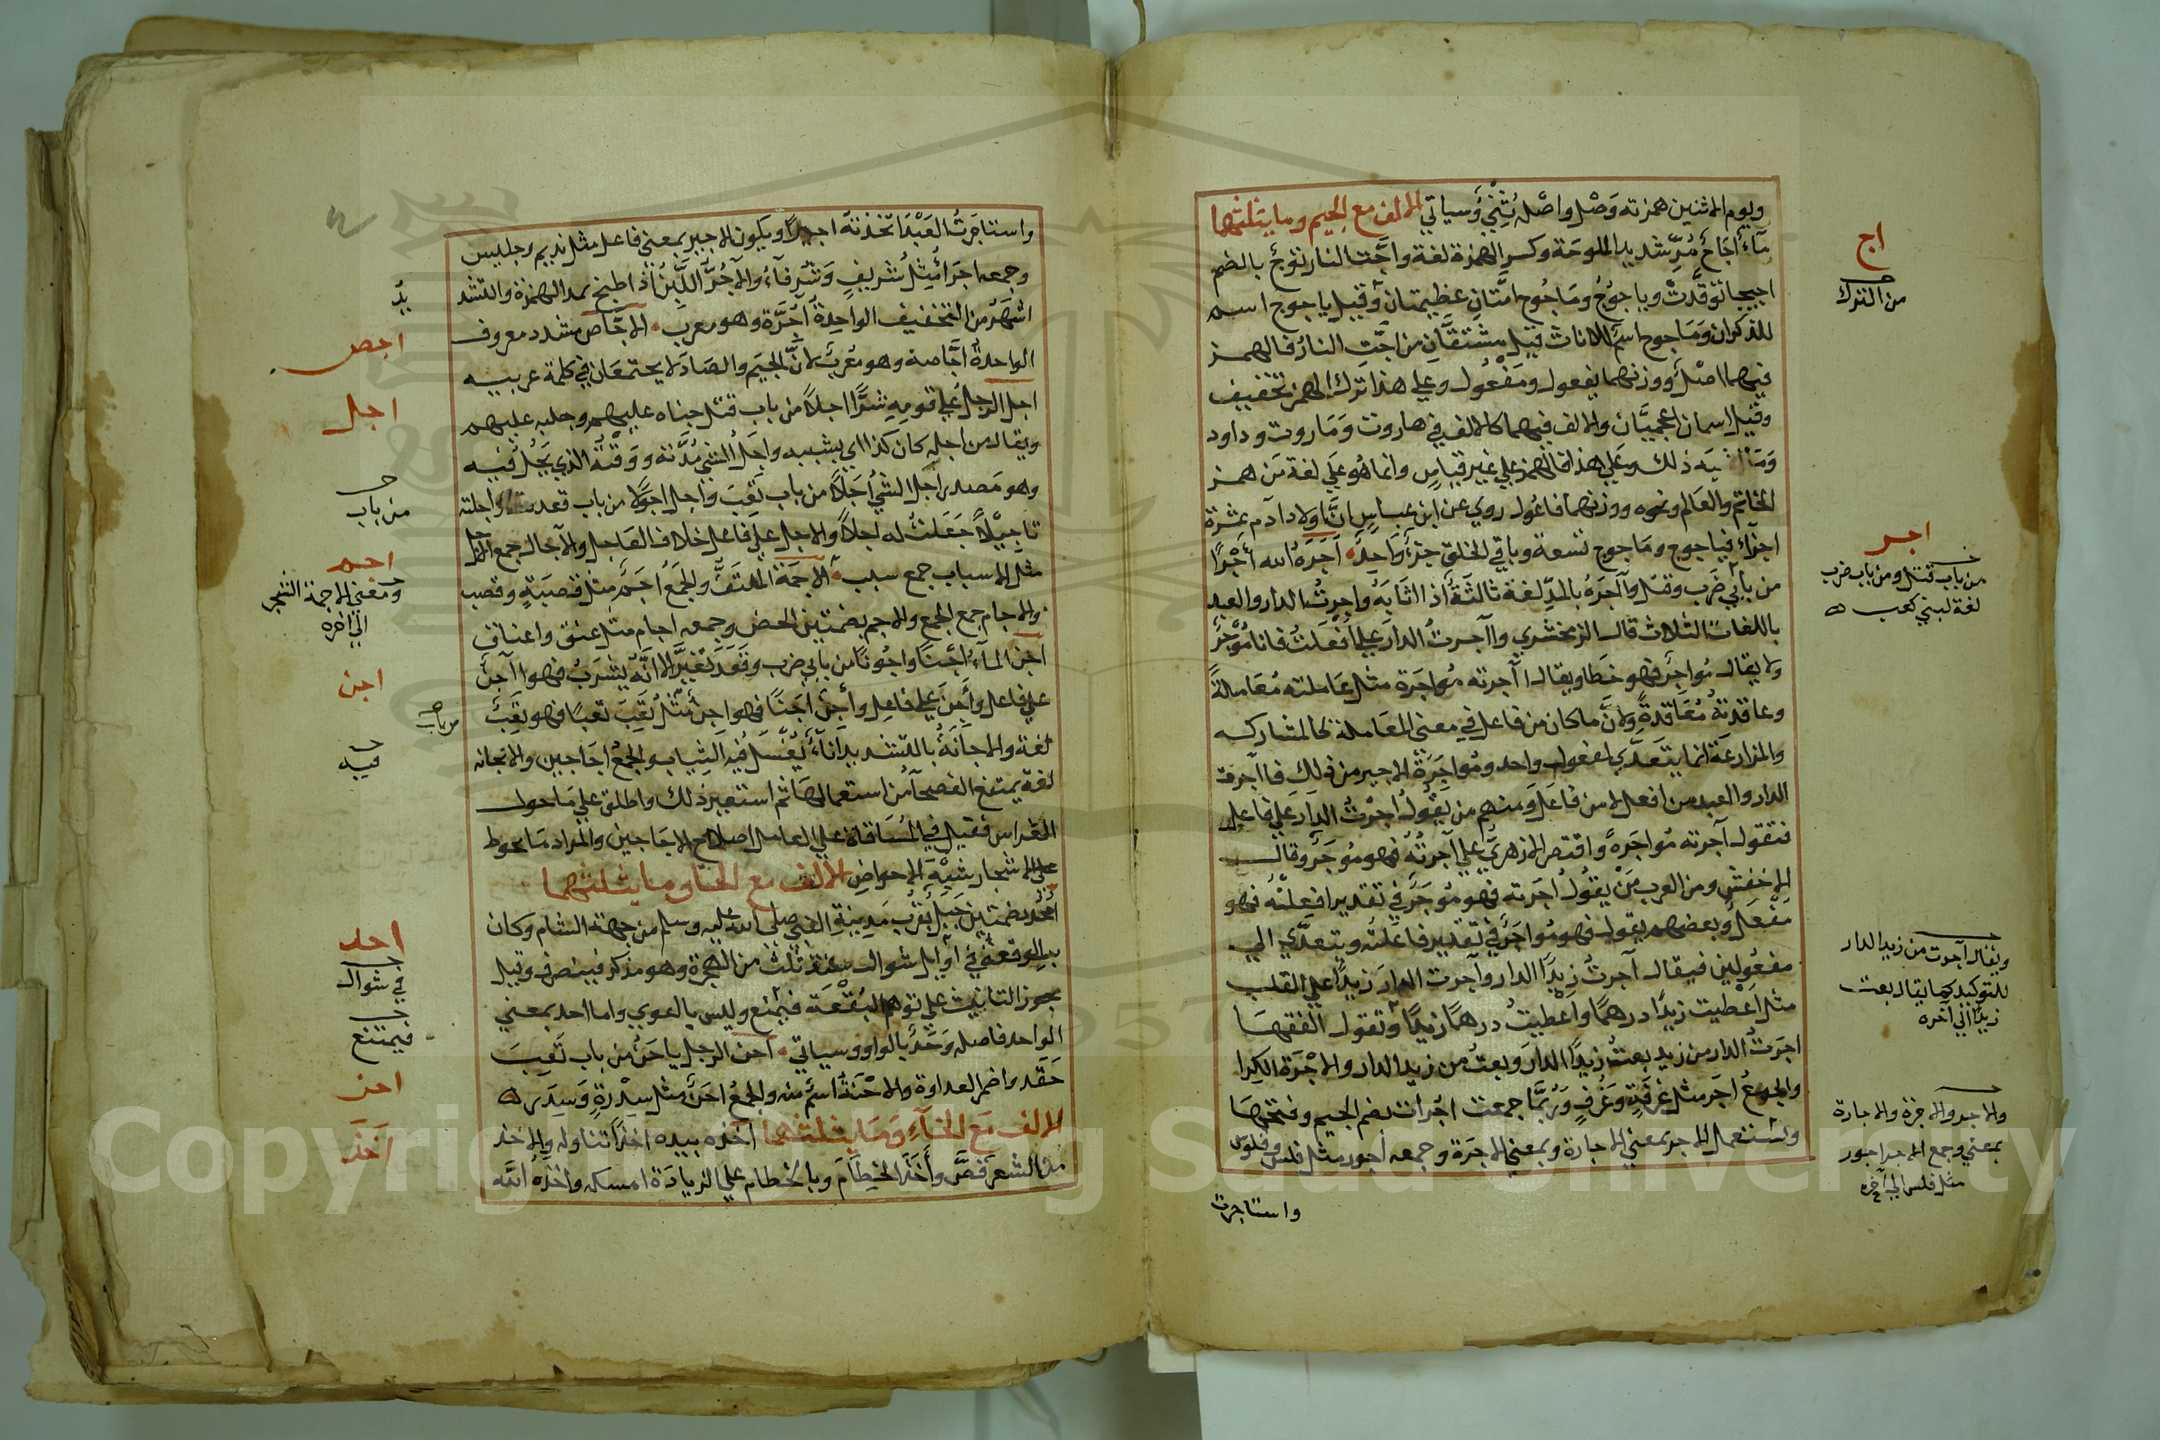 ويوم الاثنين همزته وَصْل واصْله ثِنْيٌ وسياتي الالف مع الجيم وما يثلثهما
مآءٌ أُجَاجٌ مُرٌّ شديد الملوحة وكسر الهمزة لغة واجّت النار تؤجّ بالضم
اجيجا توقَّدَتْ وياجوجُ ومَاجُوج امّتان عظيمتان وقيل ياجوج اسم
للذكران ومَاجوج اسم للاناث قيل مشتقّان من اجّتِ النارُ فالهمز
فيهما اصْلٌ ووزنهما يفعول ومَفْعُول وعلى هذا ترك الهمز تخفيف
وقيل اسمان اعجميَّان والالف فيهما كالالف في هاروت ومَاروت وداود
ومَا اشبه ذلك وعلى هذا فالهمز علي غير قياس وانما هو علي لغة من همز
الخاتم والعَالم ونحوه ووزنهما فاعُول روي عن ابن عباس انّ اولاد ادم عشرة
اجزآء فياجوج ومَاجوج تسعة وباقي الخلق جزءٌ وَاحدٌ أَجَرَهُ الله أجْرًا
من بابَي ضَرَب وقتل وآجَرَهُ بالمدّ لغة ثالثَةٌ اذا اثابَهُ وأجِرتُ الدار والعبد
باللغات الثلاث قال الزمخشري وآجرتُ الدار علي افْعَلتُ فانا مُؤجِرٌ
ولا يقال مُؤاجرٌ فهو خَطا ويقال آجرته مُؤاجَرة مثل عاملته مُعَاملةً
وعاقدتهُ مُعَاقدةً ولانّ ما كان من فاعل في معنى المعَاملة كالمشاركه
والمزارعة انما يتعَدّي لمفعول واحد ومُؤاجَرَة الاجير من ذلك فآجرت
الدار والعبد من افعل لا من فاعَل ومنهم من يقول آجَرْتُ الدار علي فاعل
فتقول آجرته مُؤاجَرةً واقتصر الازهريّ علي آجرْتُه فهو مُوجَرٌ وقال
الاخفش ومن العرب مَنْ يقولُ آجَرته فهو مُوجَرٌ في تقدير افعلتُه فهو
مُفْعَلٌ وبعضهم يقول فهو مُؤاجَرٌ في تقدير فاعلتُه ويتعدّي الي
مفعُولين فيقال آجرتُ زيدًا الدار وآجرت الدارَ زيدًا علي القلب
مثل اعطيت زيدًا درهمًا واعطيتُ درهمًا زيدًا وتقول الفقها
اجَرتُ الدار من زيد بعتُ زيدًا الدار وبعتُ من زيد الدار والاجْرَة الكِرا
والجمعُ أجَر مثل غرفَةٍ وغُرفٍ ورُبّما جمعت اجُرات بضم الجيم وفتحهَا
وتستعمل الاجر بمعني الاجارة وبمعني الاجرة وجمعه أجور مثل فلس وفلوس
واستاجرت
اج
من الترك
اجر
من باب قتل ومن باب ضرب
لغة لبني كعب
ويقال آجرت من زيد الدار
للتوكيد كما يقال بعت
زيدًا الي آخره
والاجر والاجرة والاجارة
بمعني وجمع الاجر اجور
مثل فلس الي آخره
واستاجَرتُ العَبْدَ اتّخذتهُ اجيرًا ويكون الاجير بمعني فاعل مثل نديم وجليس
وجمعه اجَراءُ مثل شريفٍ وشُرفآء والآجُرّ اللَّبِنُ اذا طبخ بمد الهمزة والتشد
اشْهَرُ من التخفيف الواحِدةُ آجُرّة وهو معرب الاجّاص مشدد معروف
الواحدةُ اجّاصة وهو معَربٌ لانَّ الجيم والصَاد لا يجتمعَان في كلمة عربيه
اجل الرجلُ علي قومهِ شرًّا اجلاً من باب قتل جناه عليهم وجلبه عليهم
ويقال من اجله كان كذا اي بسَببه واجَلُ الشي مُدّته ووَقْتهُ الذي يَحُلّ فيه
وهو مَصدر اجِلَ الشيُ اجَلاً من باب تَعِبَ واجل اجولاً من باب قعد واجلته
تاجيلاً جَعَلتُ له اجلاً والاجل علي فاعل خلاف العَاجل والآجال جمع الاجل
مثل الاسباب جمع سبب الاجَمَة الملتفّ والجَمعُ اجَمٌ مثل قصبَةٍ وقصب
والاجام جمع الجمع والاجم بضمتين الحصن وجمعه اجام مثل عنق واعناق
اجَنَ المآءُ اجْنًا واجُونًا من بابَي ضرب وقَعَدَ تغيّرَ الا انّه يُشْرَبُ فهو آجِنٌ
علي فاعل وأجِنٌ علي فاعِل وأجِنَ اجَنًا فهو اجِنٌ مثل تعِبَ تعَبًا فهو تعِبٌ
لغة والاجّانَةُ بالتشديد اناءٌ يُغْسَل فيه الثياب والجمعُ اجَاجين والانجانه
لغة يمتنع الفصحآء من استعمالهَا ثم استعير ذلك واطلق علي مَا حول
الغراس فقيل في المُسَاقاة علي العامل اصلاح الاجَاجين والمراد مَا يحوط
علي الاشجار شِبْهَ الاحواض الالف مع الحا وما يثلثهما
اُحُد بضمتين جَبلٌ بقُرب مَدِينة النبي صلى الله عليه وسلم من جهة الشام وكان
به الوقعَةُ في اوايل شوال سنة ثلث من الهجرة وهو مذكر فينصرف وقيل
يجوز التانيث علي توهم البُقْعَة فيمنع وليس بالقوي واما احد بمعني
الواحد فاصله وَحَدٌ بالواو وسياتي احن الرجل ياحَنُ من باب تَعِبَ
حَقَد واضمر العداوة والاحْنَةُ اسم منه والجمعُ احَنٌ مثل سِدْرةٍ وسِدَر
الالف مَع الخآءِ وَمَا يثلثهما اخذه بيده اخذًا تناوله والاخذ
من الشعر قصّ وأخَذ الخِطَام وبالخطام علي الزيادَة امسكه واخذَه الله
يدُ
اجص
اجل
من باب
اجم
ومعني الاجمة الشجر
الي اخره
اجن
من باب
فيه
احد
في شوال
فيمتنع
احن
اَخَذَ
Copyright © King Saud University